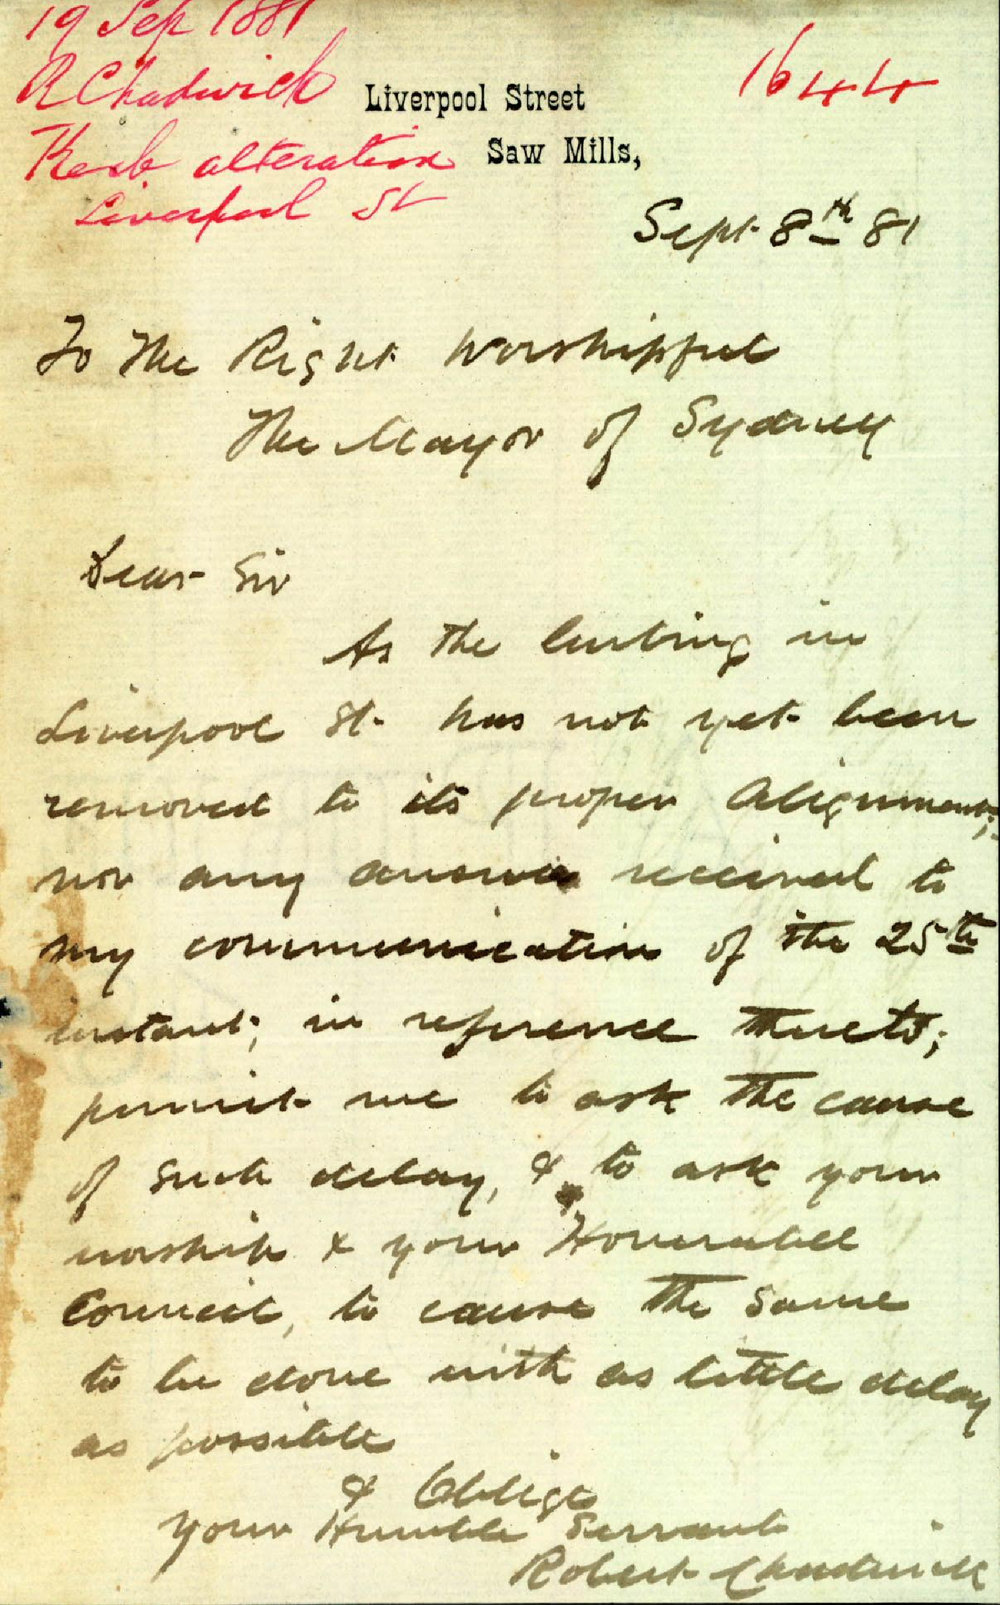 19 Sep 1881
R Chadwick
Kerb alteration
Liverpool St
1644
Liverpool Street
Saw Mills,
Sept 8th 81
To The Right Worshipful
The Mayor of Sydney
Dear Sir
As the curbing in
Liverpool St. has not yet been
removed to its proper Alignment;
nor any answer received to
my communication of the 25th
instant; in reference thereto;
permit me to ask the cause
of such delay, & to ask your
worship & your Honorable
Council, to cause the same
to be done with as little delay
as possible
& Oblige
Your Humble Servant
Robert Chadwick